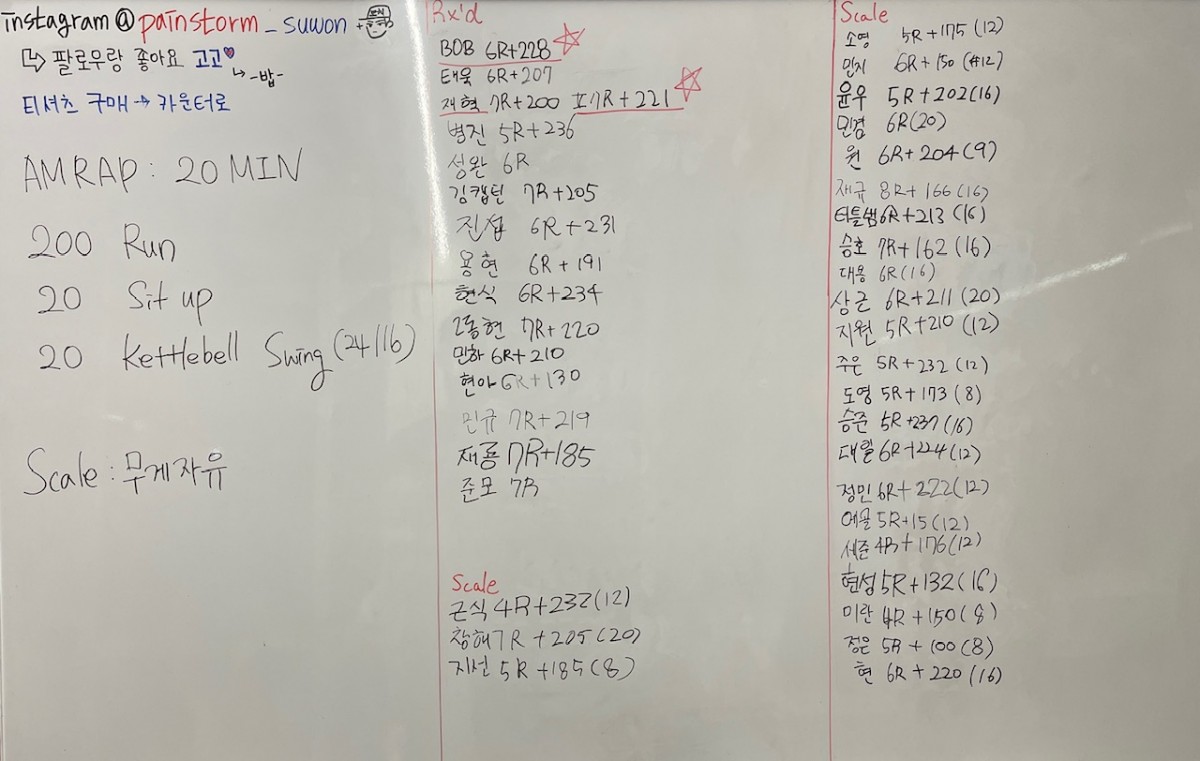 instagram@painstorm_suwon
팔로우랑 좋아요 고고
-밥-
티셔츠 구매 → 카운터로
AMRAP : 20 MIN
200 Run
20 Sit up
20 Kettlebell Swing (24/16)
Scale : 무게자유
Rx'd
BOB 6R+228
태욱 6R+207
재혁 7R+200 표 7R+221
병진 5R+236
성완 6R
김캡틴 7R+205
진섭 6R+231
용현 6R+191
현식 6R+234
7R+220
민하 6R+210
현아 6R+130
민규 7R+219
재룡 7R+185
준모 7R
Scale
근식 4R+232(12)
창해 7R+205(20)
지선 5R+185(8)
Scale
소영 5R+175(12)
민지 6R+150(#12)
윤우 5R+202(16)
민겸 6R(20)
원 6R+204(9)
재규 8R+166(16)
터틀쌤 6R+213(16)
승호 7R+162(16)
대용 6R(16)
상근 6R+211(20)
지원 5R+210(12)
주은 5R+232(12)
도영 5R+173(8)
승준 5R+237(16)
6R+224(12)
정민 6R+222(12)
5R+15(12)
세준 4R+176(12)
현성 5R+132(16)
미란 4R+150(8)
정은 5R+100(8)
현 6R+220(16)